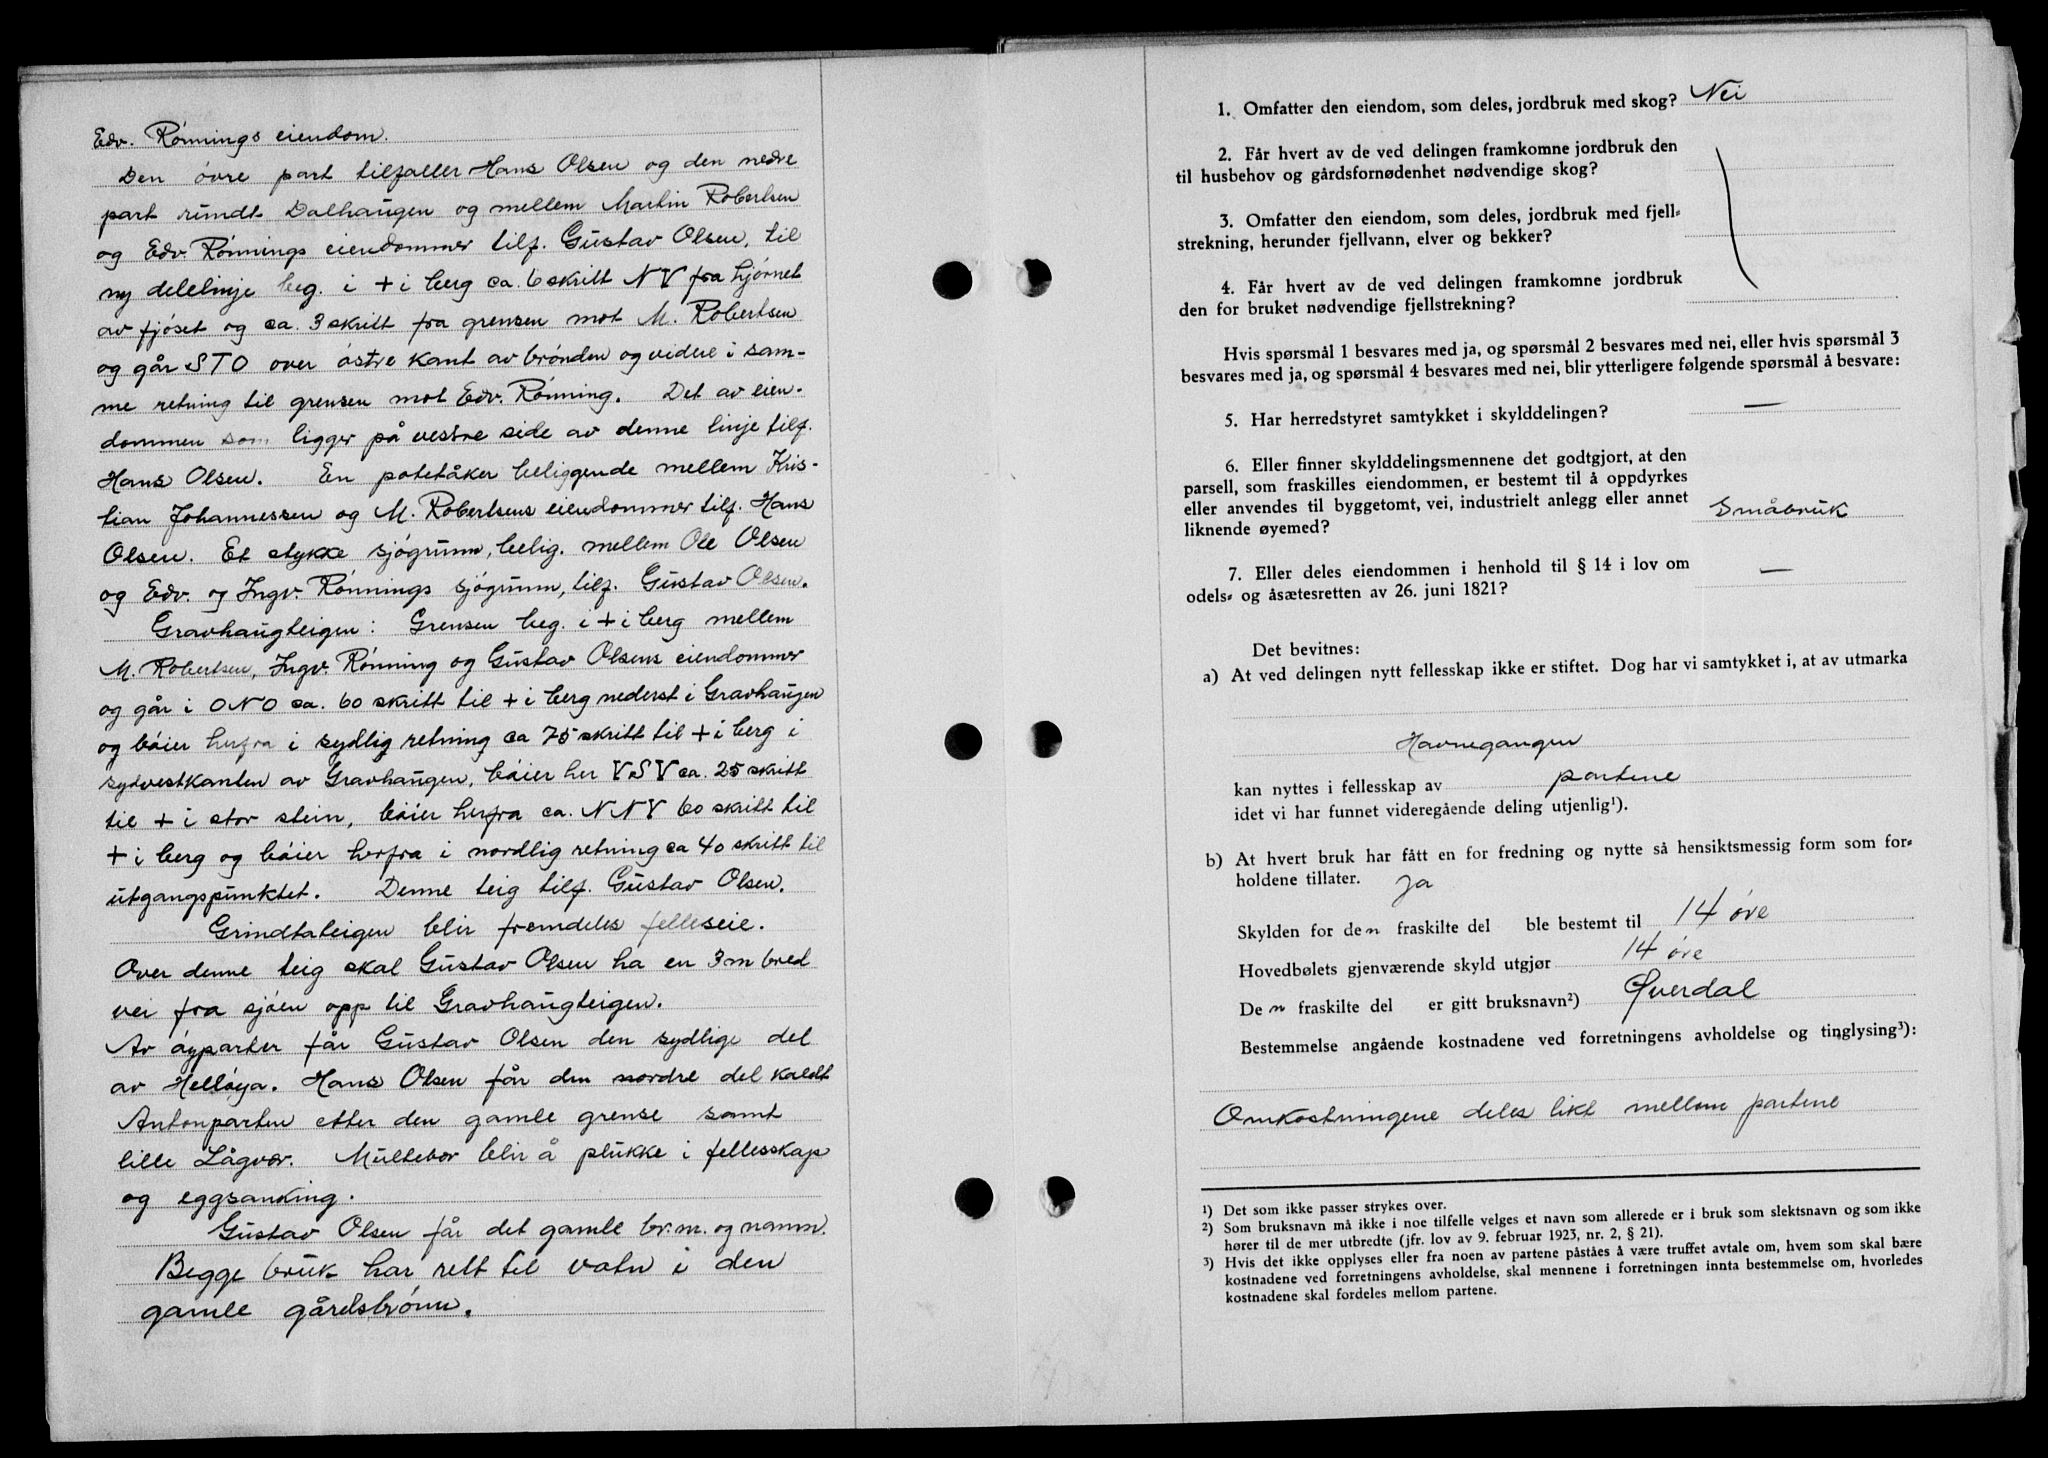 Edv. Rönnings eiendom.
Den övre part tilfaller Hans Olsen og den nedre
part rundt Dalhaugen og mellem Martin Robertsen
og Edv Rönnings eiendommer tilf. Gustav Olsen, til
ny delelinje beg. i + i berg ca. 6 skritt NV fra hjörnet
av fjöset og ca. 3 skritt fra grensen mot M. Robertsen
og går STO over östre kant av brönden og videre i sam-
me retning til grensen mot Edv. Rönning. Det av eien-
dommen som ligger på vestre side av denne linje tilf.
Hans Olsen. En potetåker beliggende mellem Kris-
tian Johannessen og M. Robertsens eiendommer tilf. Hans
Olsen. Et stykke sjögrunn, belig. mellem Ole Olsen
og Edv. og Ingv. Rönnings sjögrunn, tilf. Gustav Olsen.
Gravhaugteigen: Grensen beg. i + i berg mellem
M. Robertsen, Ingv. Rönning og Gustav Olsens eiendommer
og går i ONO ca. 60 skritt til + i berg nederst i Gravhaugen
og böier herfra i sydlig retning ca 75 skritt til + i berg i
sydvestkanten av Gravhaugen, böier her VSV ca. 25 skritt
til + i stor stein, böier herfra ca. NNV 60 skritt til
+ i berg og böier herfra i nordlig retning ca 40 skritt til
utgangspunktet. Denne teig tilf. Gustav Olsen.
Grindtateigen blir fremdeles felleseie.
Over denne teig skal Gustav Olsen ha en 3 m bred
vei fra sjöen opp til Gravhaugteigen.
Av öyparter får Gustav Olsen den sydlige del
av Hellöya. Hans Olsen får den nordre del kaldt
Antonparten etter den gamle grense samt
lille Lågvær. Multebær blir å plukke i fellesskap
og eggsanking.
Gustav Olsen får det gamle br.nr. og navn.
Begge bruk har rett til vatn i den
gamle gårdsbrönn.
1. Omfatter den eiendom, som deles, jordbruk med skog? Nei
2. Får hvert av de ved delingen framkomne jordbruk den
til husbehov og gårdsfornødenhet nødvendige skog?
3. Omfatter den eiendom, som deles, jordbruk med fjell-
strekning, herunder fjellvann, elver og bekker?
4. Får hvert av de ved delingen framkomne jordbruk
den for bruket nødvendige fjellstrekning?
Hvis spørsmål 1 besvares med ja, og spørsmål 2 besvares med nei, eller hvis spørsmål 3
besvares med ja, og spørsmål 4 besvares med nei, blir ytterligere følgende spørsmål å besvare:
5. Har herredstyret samtykket i skylddelingen? —
6. Eller finner skylddelingsmennene det godtgjort, at den
parsell, som fraskilles eiendommen, er bestemt til å oppdyrkes
eller anvendes til byggetomt, vei, industrielt anlegg eller annet
liknende øyemed? Småbruk
7. Eller deles eiendommen i henhold til § 14 i lov om
odels- og åsætesretten av 26. juni 1821? —
Det bevitnes:
a) At ved delingen nytt fellesskap ikke er stiftet. Dog har vi samtykket i, at av utmarka
Havnegangen
kan nyttes i fellesskap av partene
idet vi har funnet videregående deling utjenlig¹).
b) At hvert bruk har fått en for fredning og nytte så hensiktsmessig form som for-
holdene tillater. Ja
Skylden for den fraskilte del ble bestemt til 14 øre
Hovedbølets gjenværende skyld utgjør 14 øre
Den fraskilte del er gitt bruksnavn²) Øverdal
Bestemmelse angående kostnadene ved forretningens avholdelse og tinglysing³):
Omkostningene deles likt mellem partene
¹) Det som ikke passer strykes over.
²) Som bruksnavn må ikke i noe tilfelle velges et navn som allerede er i bruk som slektsnavn og som ikke
hører til de mer utbredte (jfr. lov av 9. februar 1923, nr. 2, § 21).
³) Hvis det ikke opplyses eller fra noen av partene påståes å være truffet avtale om, hvem som skal bære
kostnadene ved forretningens avholdelse, skal mennene i forretningen innta bestemmelse om, hvorledes
kostnadene skal fordeles mellom partene.